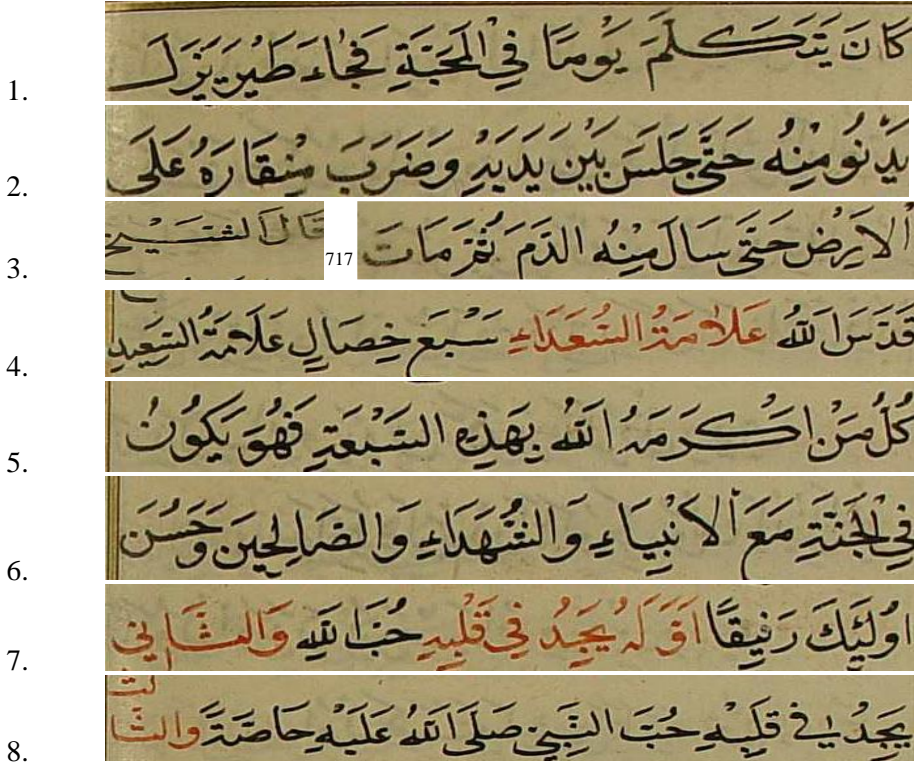 1. كَانَ يَتَكَلَّمَ يَوْمًا فِي الْمَحَبَّةِ فَجَاءَ طَيْرٌ يَزَلْ
2. يَدْنُو مِنْهُ حَتَّى جَلَسَ بَيْنَ يَدَيْهِ وَضَرَبَ مِنْقَارَهُ عَلَى
3. الْأَرْضِ حَتَّى سَالَ مِنْهُ الدَّمَ ثُمَّ مَاتَ 717 قَالَ الشَّيْخ
4. قَدَّسَ اللهُ عَلَامَةُ السُّعَدَاءِ سَبْعَ خِصَالٍ عَلَامَةُ السَّعِيدِ
5. كُلُّ مَنْ اكْرَمَهُ اللهُ بِهَذِهِ السَّبْعَةِ فَهُوَ يَكُونُ
6. فِي الْجَنَّةِ مَعَ الْأَنْبِيَاءِ وَالشُّهَدَاءِ وَالصَّالِحِينَ وَحَسُنَ
7. اُولَئِكَ رَفِيقًا اَوَّلُهُ يَجِدُ فِي قَلْبِهِ حُبَّ اللهِ وَالثَّانِي
8. يَجِدُ فِي قَلْبِهِ حُبَّ النَّبِيِّ صَلَّى اللهُ عَلَيْهِ حَاصَّةً وَالثَّالث